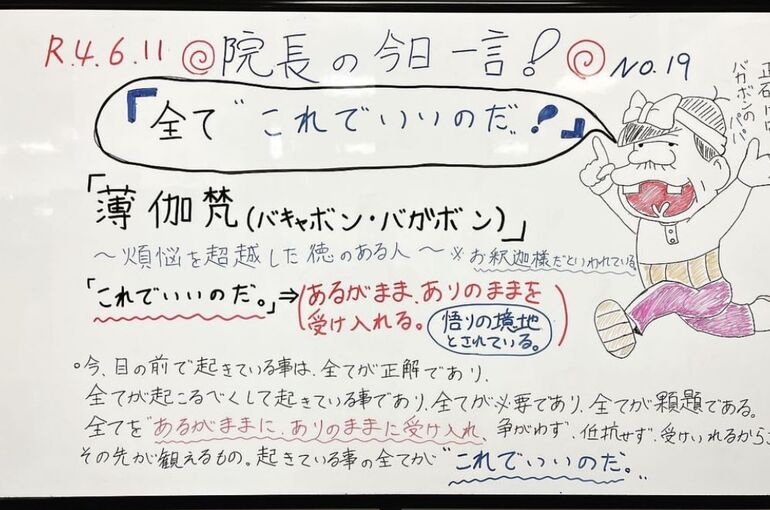 R.4.6.11 院長の今日一言! NO.19
『全て"これでいいのだ"!』
バカボンのパパ
「薄伽梵(バキャボン・バガボン)」
～煩悩を超越した徳のある人～ ※お釈迦様だといわれている。
「これでいいのだ。」⇒(あるがまま、ありのままを
受け入れる。 悟りの境地
とされている。)
○今、目の前で起きている事は、全てが正解であり、
全てが起こるべくして起きている事であり、全てが必要であり、全てが題である。
全てを"あるがままに、ありのままに受け入れ、争がわず、低抗せず、受けいれるからこ
その先が観えるもの。起きている事の全てが"これでいいのだ。"